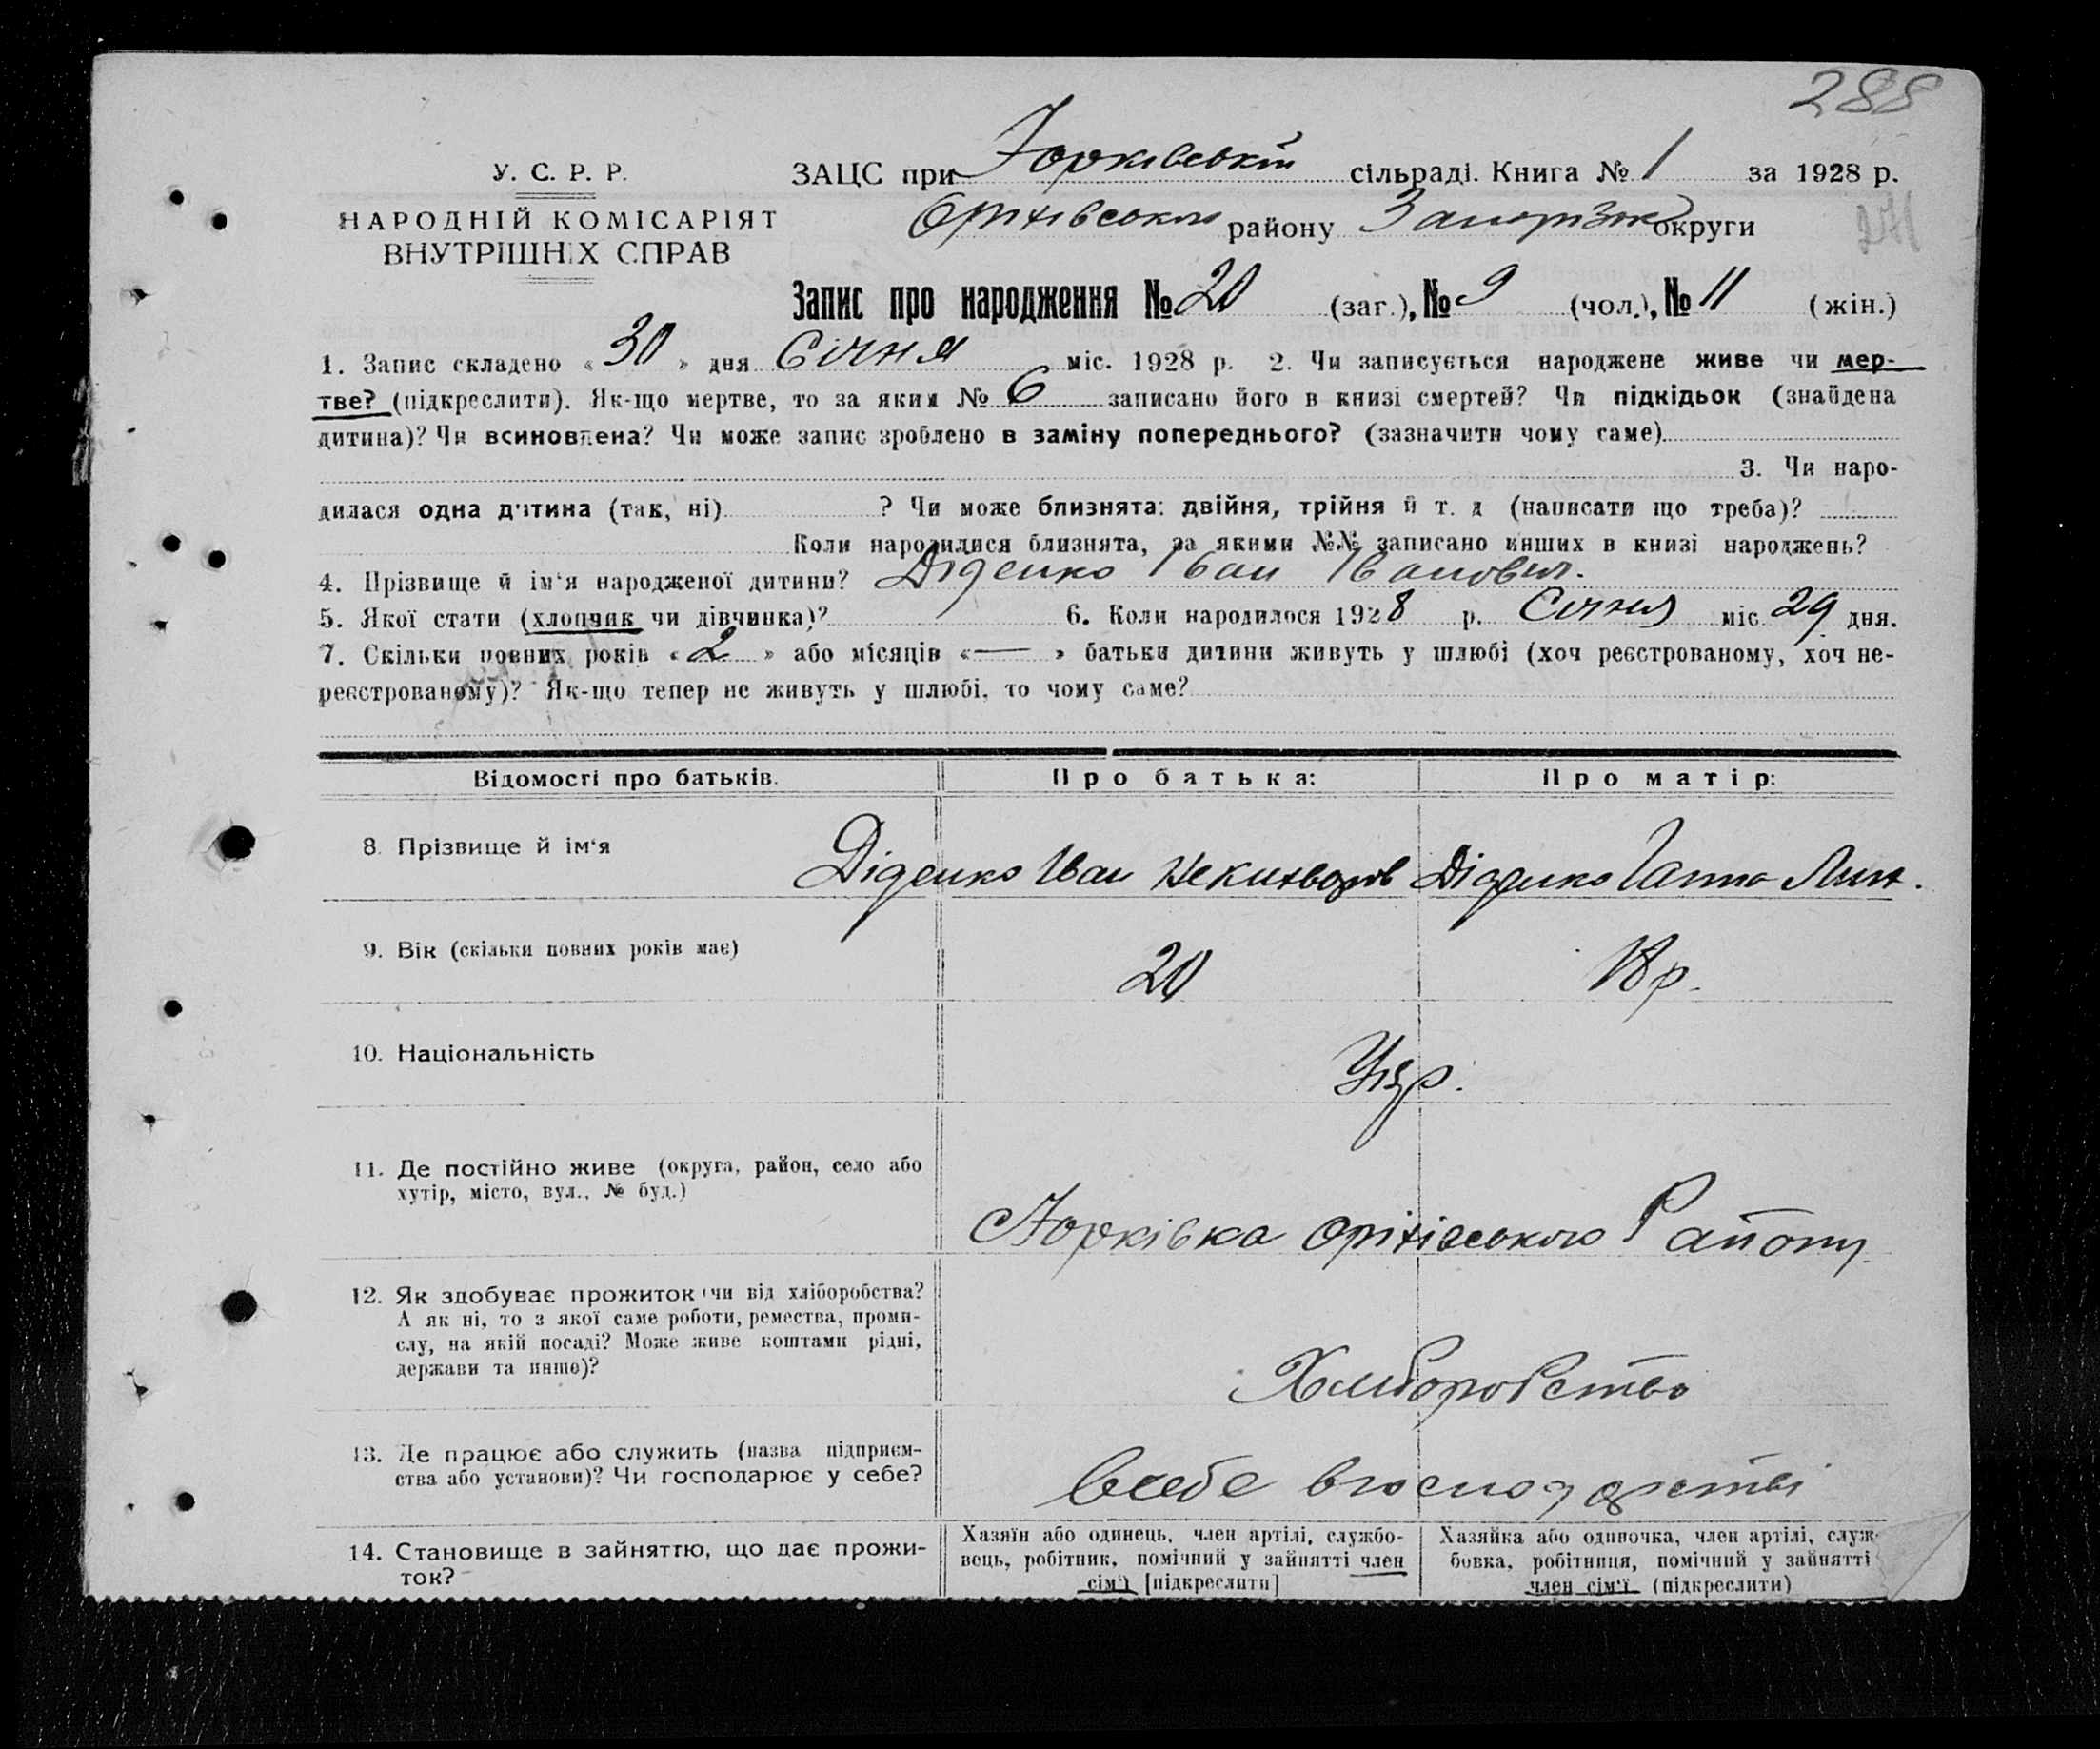 288
У. С. Р. Р.
НАРОДНІЙ КОМІСАРІЯТ
ВНУТРІШНІХ СПРАВ
ЗАЦС при Юрківській сільраді. Книга № 1 за 1928 р.
Оріхівського району Запоріжж округи
Запис про народження № 20 (заг.), № 9 (чол.), № 11 (жін.)
1. Запис складено « 30 » дня Січня міс. 1928 р. 2. Чи записується народжене живе чи мер-
тве? (підкреслити). Як-що мертве, то за яким № 6 записано його в книзі смертей? Чи підкідьок (знайдена
дитина)? Чи всиновлена? Чи може запис зроблено в заміну попереднього? (зазначити чому саме)
3. Чи наро-
дилася одна дитина (так, ні) ? Чи може близнята: двійня, трійня й т. д (написати що треба)?
Коли народилися близнята, за якими №№ записано инших в книзі народжень?
4. Прізвище й ім'я народженої дитини? Діденко Іван Іванович.
5. Якої стати (хлопчик чи дівчинка)? 6. Коли народилося 1928 р. Січня міс 29 дня.
7. Скільки повних років « 2 » або місяців « — » батьки дитини живуть у шлюбі (хоч реєстрованому, хоч не-
реєстрованому)? Як-що тепер не живуть у шлюбі, то чому саме?
Відомості про батьків. Про батька: Про матір:
8. Прізвище й ім'я Діденко Іван Діденко Ганна
9. Вік (скільки повних років має) 20 18 р.
10. Національність Укр.
11. Де постійно живе (округа, район, село або
хутір, місто, вул., № буд.)
Юрківка Оріхівського Району
12. Як здобуває прожиток (чи від хліборобства?
А як ні, то з якої саме роботи, ремества, проми-
слу, на якій посаді? Може живе коштами рідні,
держави та инше)?
Хліборобство
13. Де працює або служить (назва підприєм-
ства або установи)? Чи господарює у себе?
В себе в господарстві
14. Становище в зайняттю, що дає прожи-
ток?
Хазяїн або одинець, член артілі, службо-
вець, робітник, помічний у зайнятті член
сім'ї [підкреслити]
Хазяйка або одиночка, член артілі, служ-
бовка, робітниця, помічний у зайнятті
член сім'ї (підкреслити)